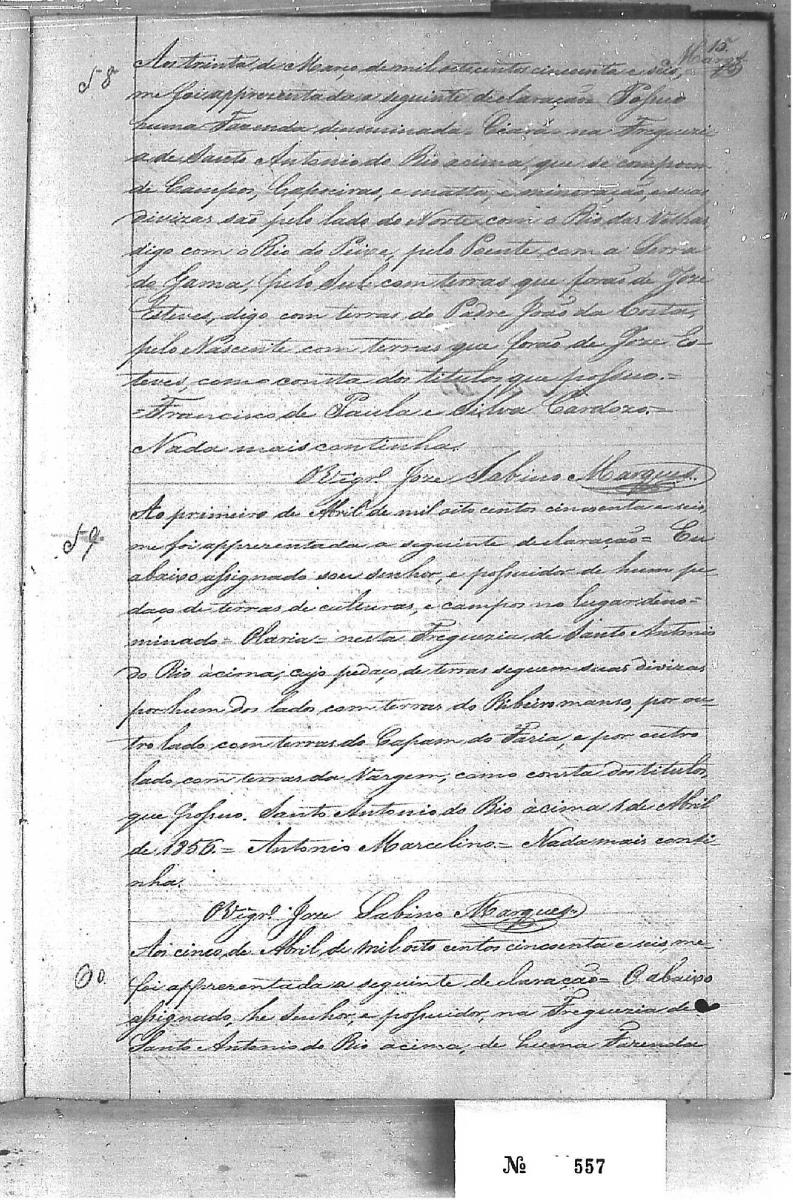 15
Marques
58
Aos trinta de Março de mil oito centos cincoenta e seis,
me foi apprezentada a seguinte declaração= Possuo
huma Fazenda denominada= Ciará= na Freguezi-
a de Santo Antonio do Rio acima, que se compoem
de Campos, Capoeiras, e mattos, e mineração, e suas
divizas são pelo lado do Norte com o Rio das Velhas
digo com o Rio do Peixe, pelo Poente com a Serra
do Gama, pelo Sul com terras que forão de Joze
Esteves, digo com terras do Padre João da Costa,
pelo Nascente com terras que forão de Joze Es-
teves, como consta dos titulos que possuo.=
=Francisco de Paula e Silva Cardozo.=
Nada mais continha.
O Vigr.º Joze Sabino Marques.
59.
Ao primeiro de Abril de mil oito centos cincoenta e seis,
me foi apprezentada a seguinte declaração= Eu
abaixo assignado sou senhor, e possuidor de hum pe-
daço de terras de culturas, e campos no lugar deno-
minado= Olaria= nesta Freguezia de Santo Antonio
do Rio ácima, cujo pedaço de terras seguem suas divizas
por hum dos lados com terras do Ribeiro manso, por ou-
tro lado com terras do Capam do Faria, e por outro
lado com terras da Vargem, como consta dos titulos,
que possuo. Santo Antonio do Rio ácima 1 de Abril
de 1856.= Antonio Marcelino.= Nada mais conti-
nha.
O Vigr.º Joze Sabino Marques.
60.
Aos cinco de Abril de mil oito centos cincoenta e seis, me
foi apprezentada a seguinte declaração= O abaixo
assignado, he Senhor, e possuidor, na Freguezia de
Santo Antonio do Rio ácima, de huma Fazenda
Nº 557